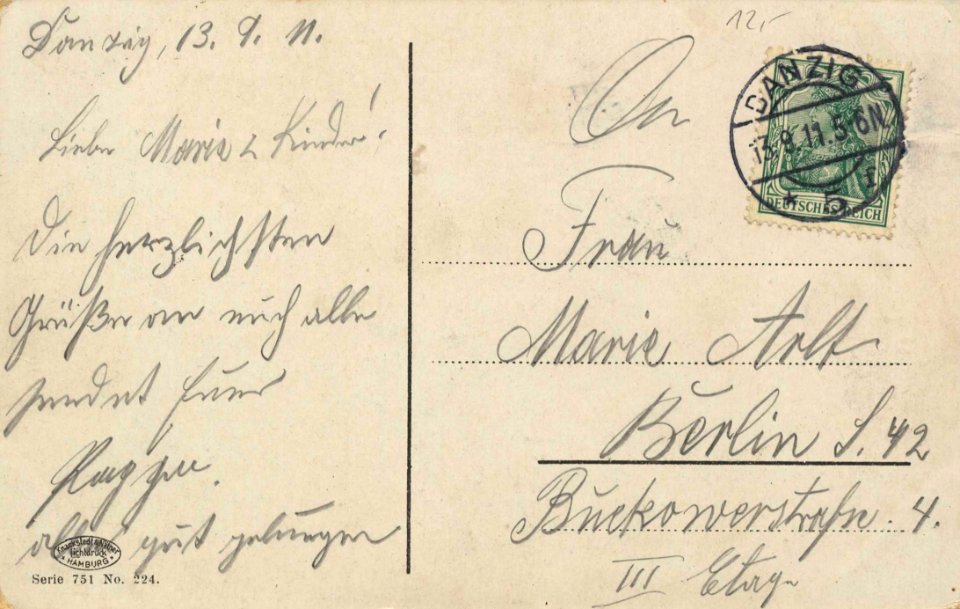 Danzig, 13. 9. 11.
Liebe Marie & Kinder!
Die herzlichsten
Grüße an euch alle
sendet Euer
alles gut gelungen
Knackstedt & Näther
Lichtdruck
HAMBURG
Serie 751 No. 224.
12,-
DANZIG
13.9.11.5-6N.
* 5 r
DEUTSCHES REICH
An
Frau
Marie Arlt
Berlin S. 42
Buckowerstraße. 4.
III Etage